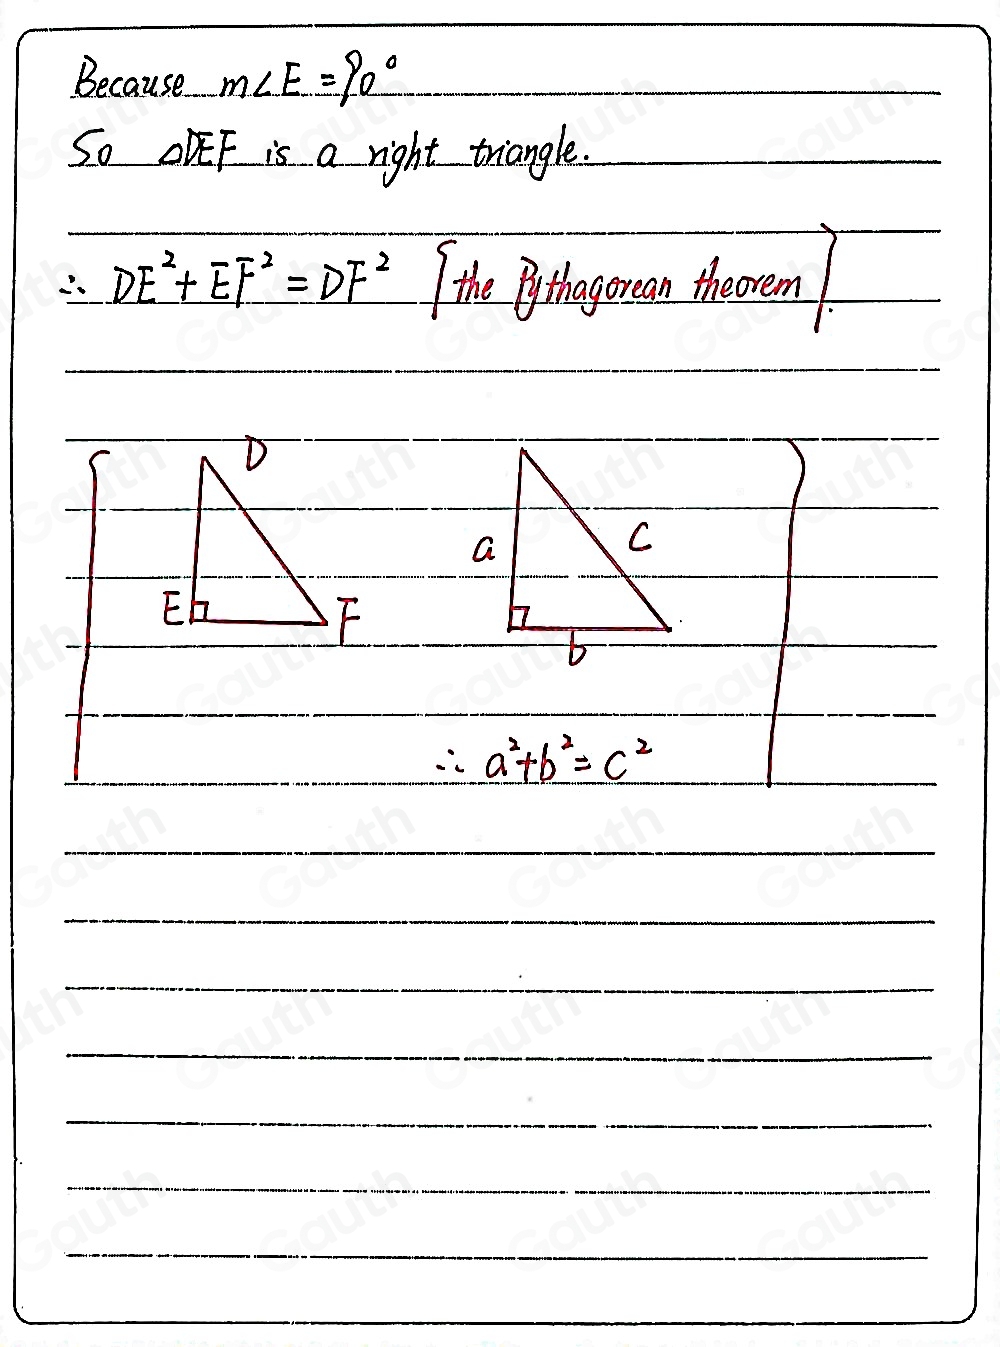 Because m∠E = 90°
So △DEF is a right triangle.
∴ DE² + EF² = DF² [the Pythagorean theorem].
D
E
F
a
c
b
∴ a² + b² = c²
Gauth